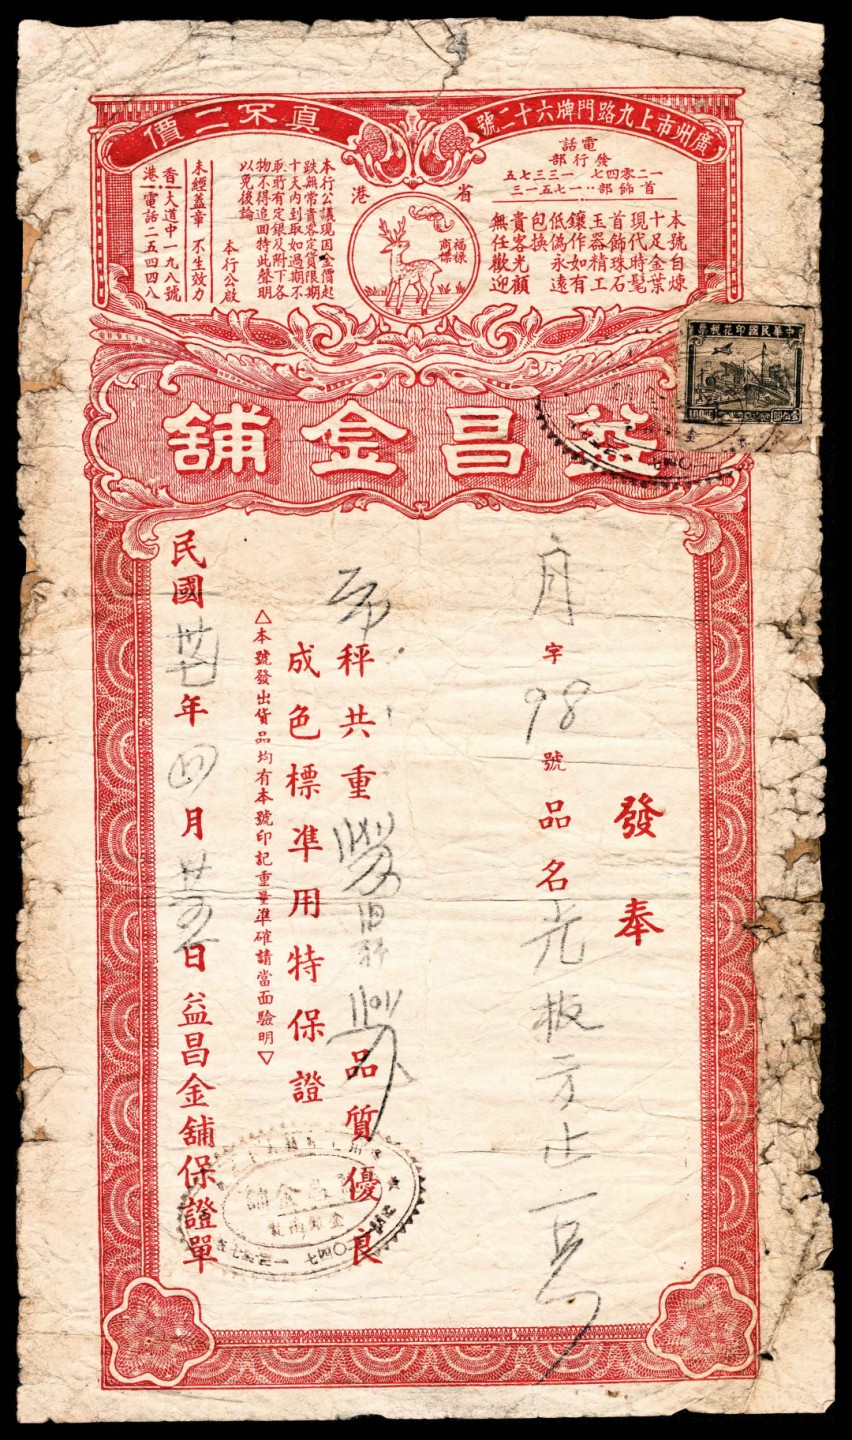 廣州市上九路門牌六十二號
真不二價
電話
發行部
一二零四七 一三三七五
首飾部：一七五一三
本號自煉
十足金葉
現代時髦
首飾珠石
玉器精工
鑲作如有
低偽永遠
包換
貴客光顧
無任歡迎
省港
福祿商標
本行公議現因金價起
跌無常貴客定貨限期
十天內到取如過期不
取貯有定銀及附下各
物不得追回特此聲明
以免後論
本行公啟
未經蓋章 不生效力
香港大道中一九八號
電話二五四四八
中華民國印花稅票
益昌金舖
發奉
月字98號品名光板方止一只
秤共重
品質優良
成色標準用特保證
△本號發出貨品均有本號印記重量準確請當面驗明▽
民國卅七年四月廿 日益昌金舖保證單